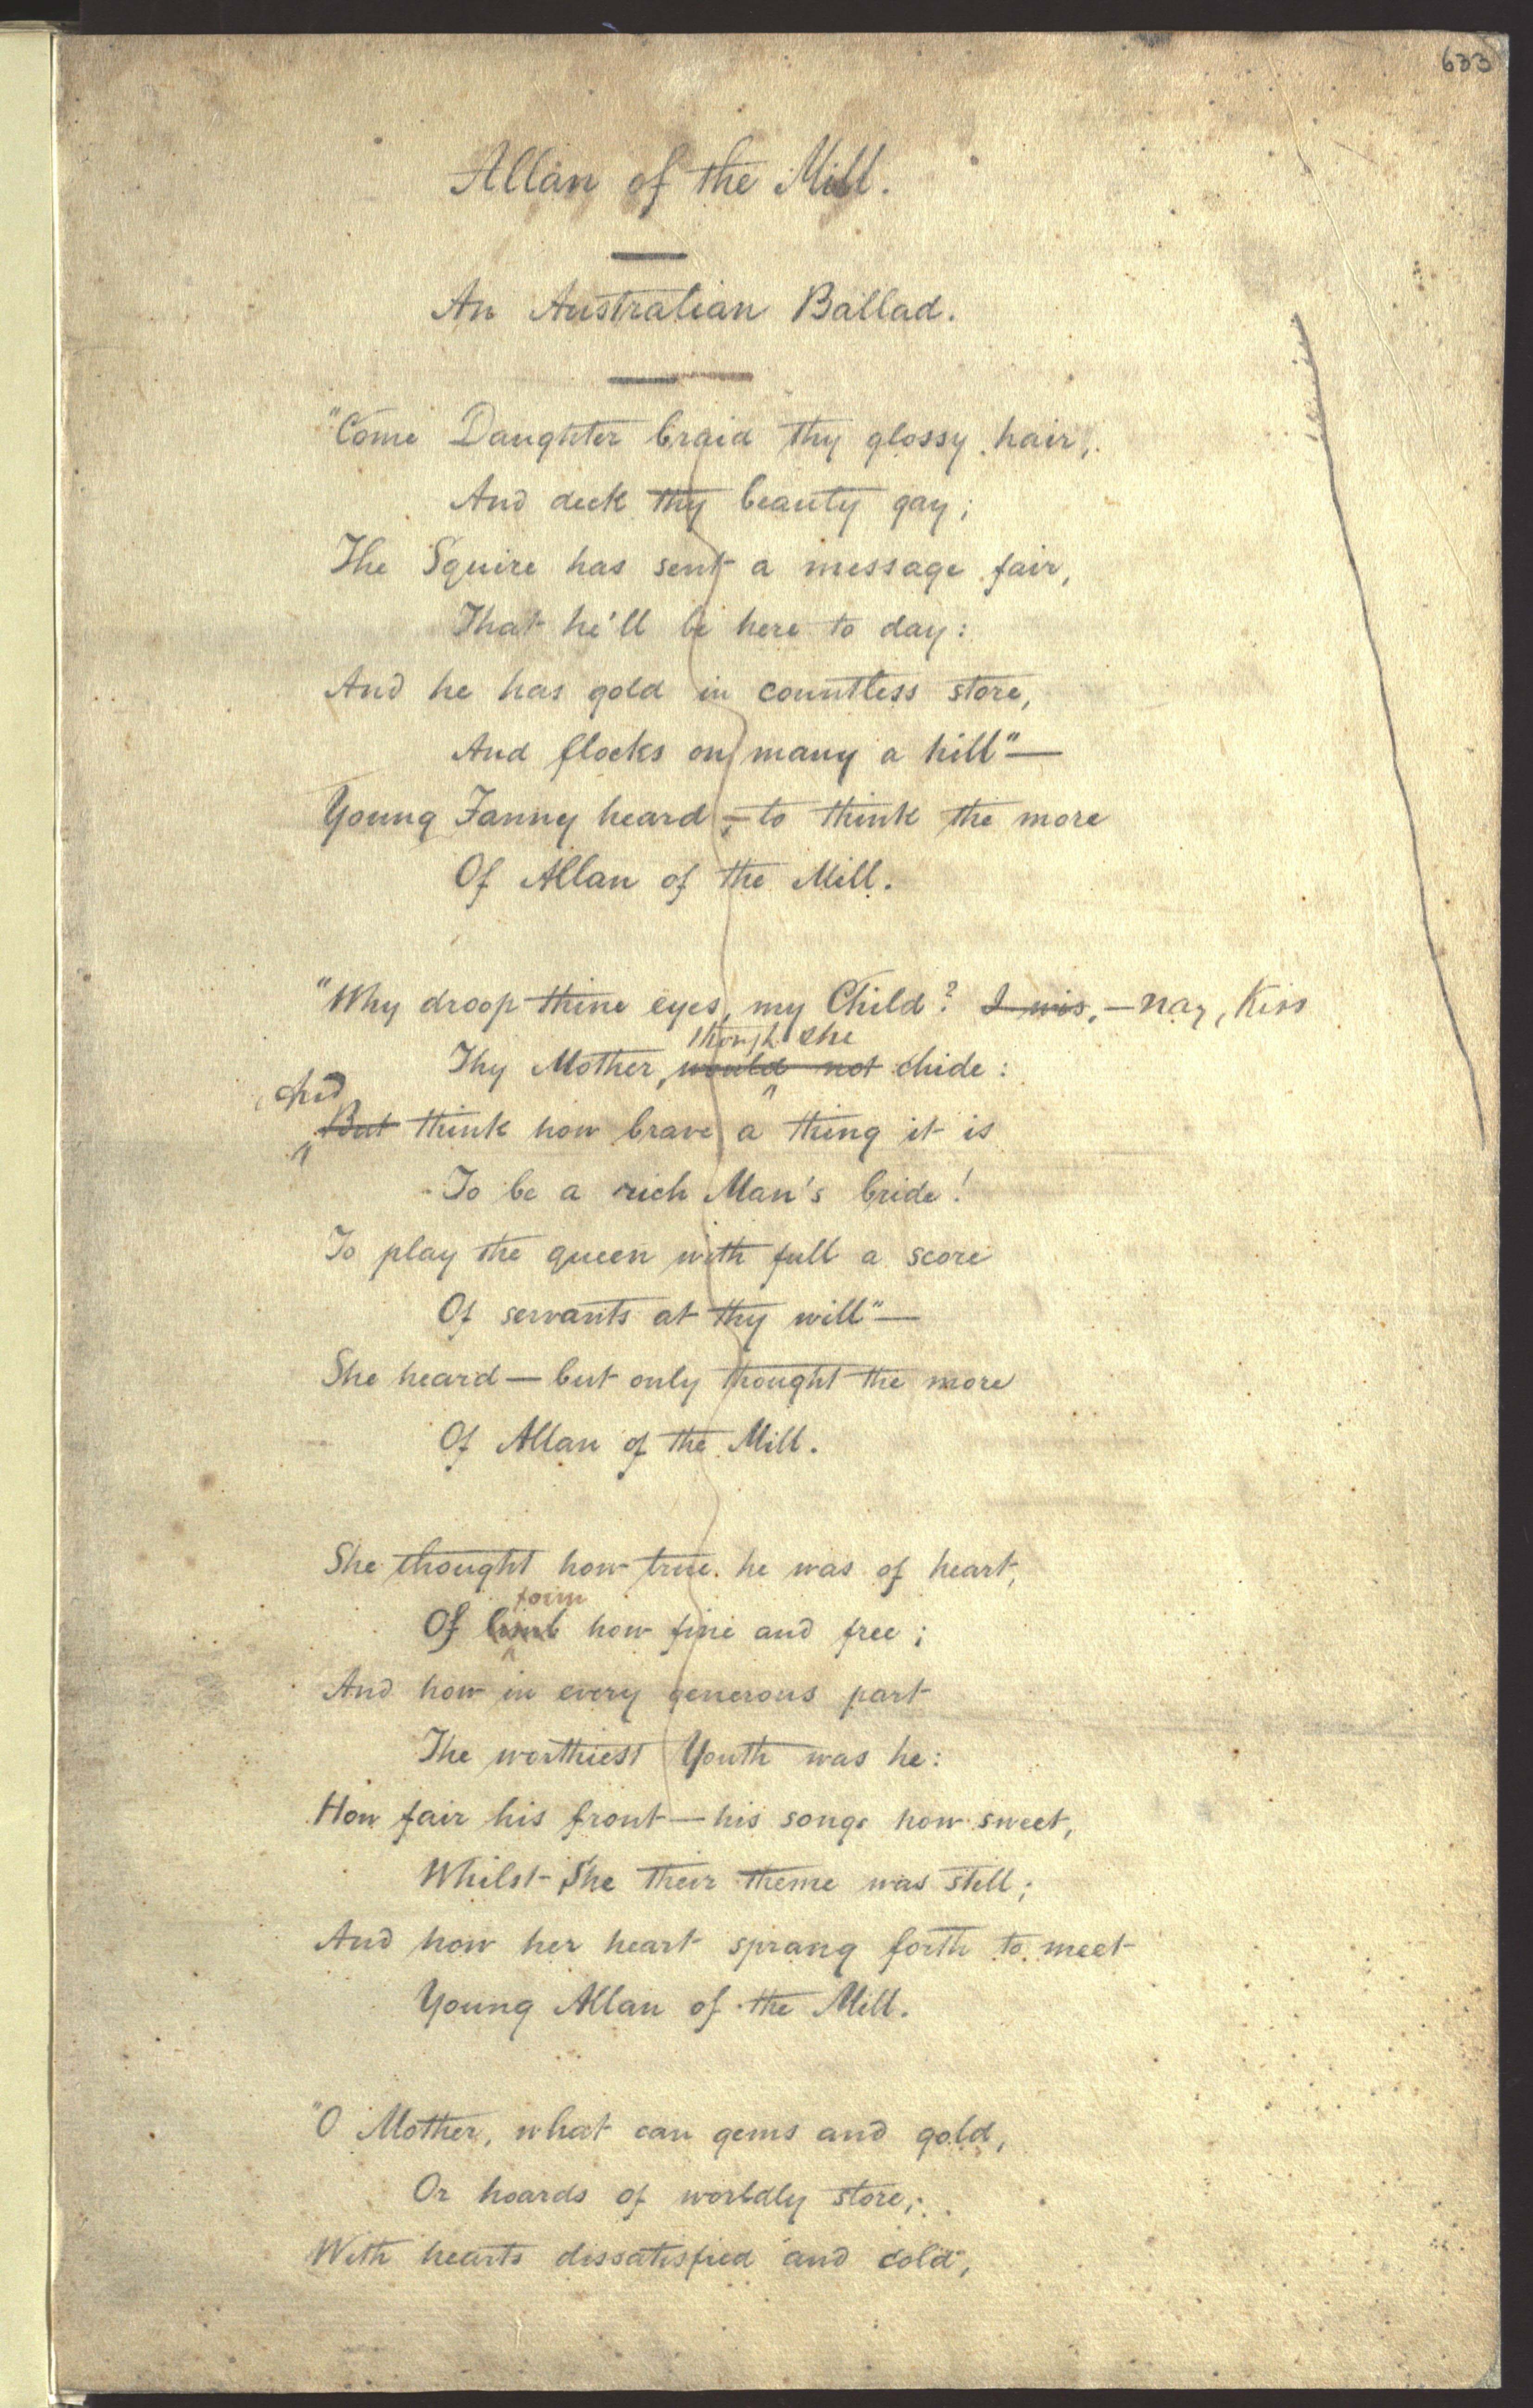 633
Allan of the Mill.
An Australian Ballad.
"Come Daughter braid thy glossy hair,
And deck thy beauty gay;
The Squire has sent a message fair,
That he'll be here to day:
And he has gold in countless store,
And flocks on many a hill"—
Young Fanny heard,—to think the more
Of Allan of the Mill.
"Why droop thine eyes, my Child? I wis,—nay, Kiss
though she
Thy Mother, would not chide:
And
But think how brave a thing it is
To be a rich Man's bride!
To play the queen with full a score
Of servants at thy will"—
She heard—but only thought the more
Of Allan of the Mill.
She thought how true he was of heart,
form
Of limb how fine and free;
And how in every generous part
The worthiest Youth was he:
How fair his front—his songs how sweet,
Whilst She their theme was still;
And how her heart sprang forth to meet
Young Allan of the Mill.
"O Mother, what can gems and gold,
Or hoards of worldly store,
With hearts dissatisfied and cold,